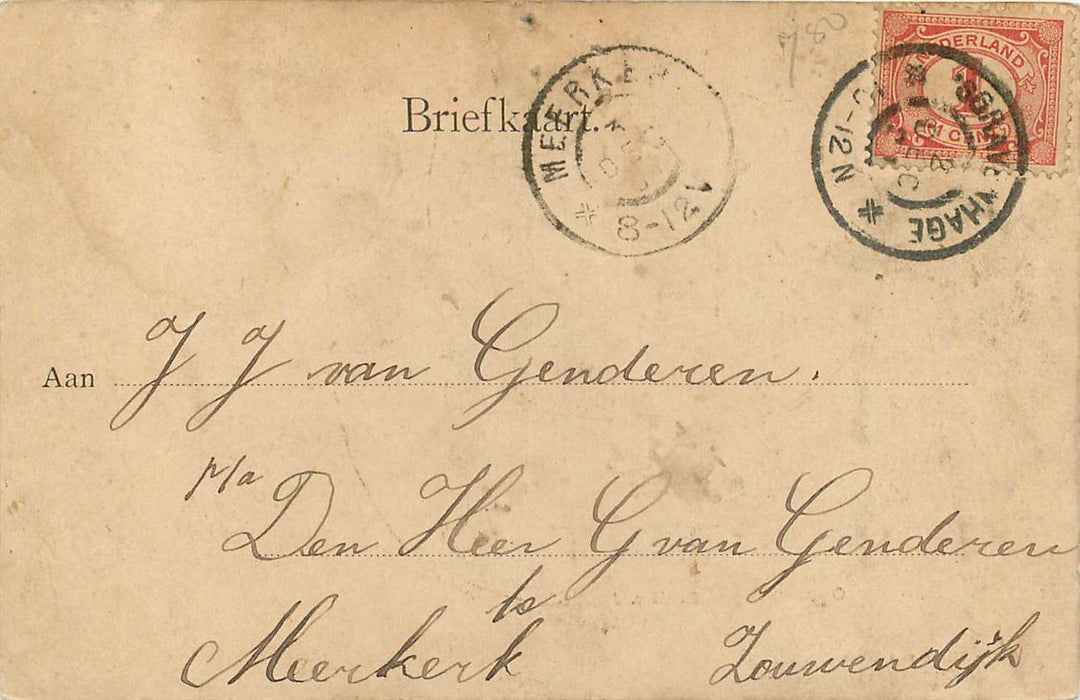 780
NEDERLAND
1 CENT
Briefkaart.
MEERKERK
8-12V
'SGRAVENHAGE
10-12N
Aan J J van Genderen.
p/a Den Heer G van Genderen
te
Meerkerk Zouwendijk